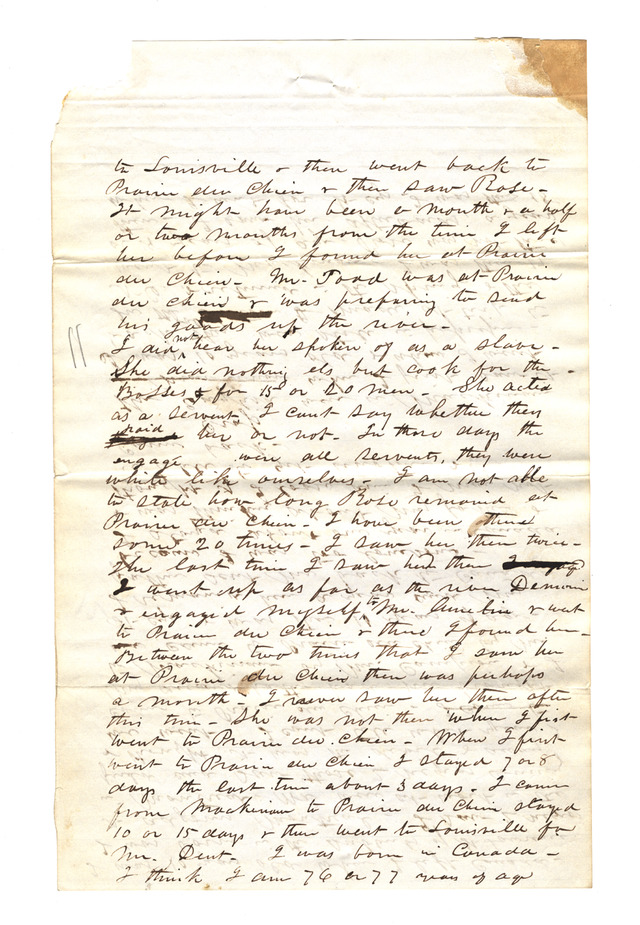 to Louisville & then went back to
Prairie du Chien & then saw Rose -
It might have been a month & a half
or two months from the time I left
her before I found her at Prairie
du Chien - Mr. Todd was at Prairie
du Chien & was preparing to send
his goods up the river -
11
I did not hear her spoken of as a slave -
She did nothing els but cook for the -
Bosses & for 15 or 20 men - She acted
as a servent I cant say whether they
paid her or not - In those days the
engage were all servents, they were
white like ourselves - I am not able
to state how long Rose remained at
Prairie du Chien - I have been there
some 20 times - I saw her there twice -
The last time I saw her there
I went up as far as the river Demoin
& engaged myself to Mr. & went
to Prairie du Chien & there I found her -
Between the two times that I saw her
at Prairie du Chien there was perhaps
a month - I never saw her there after
this time - She was not there when I first
went to Prairie du Chien - When I first
went to Prairie du Chien I stayed 7 or 8
days the last time about 3 days - I came
from Mackinaw to Prairie du Chien stayed
10 or 15 days & then went to Louisville for
Mr. Dent - I was born in Canada -
I think I am 76 or 77 years of age